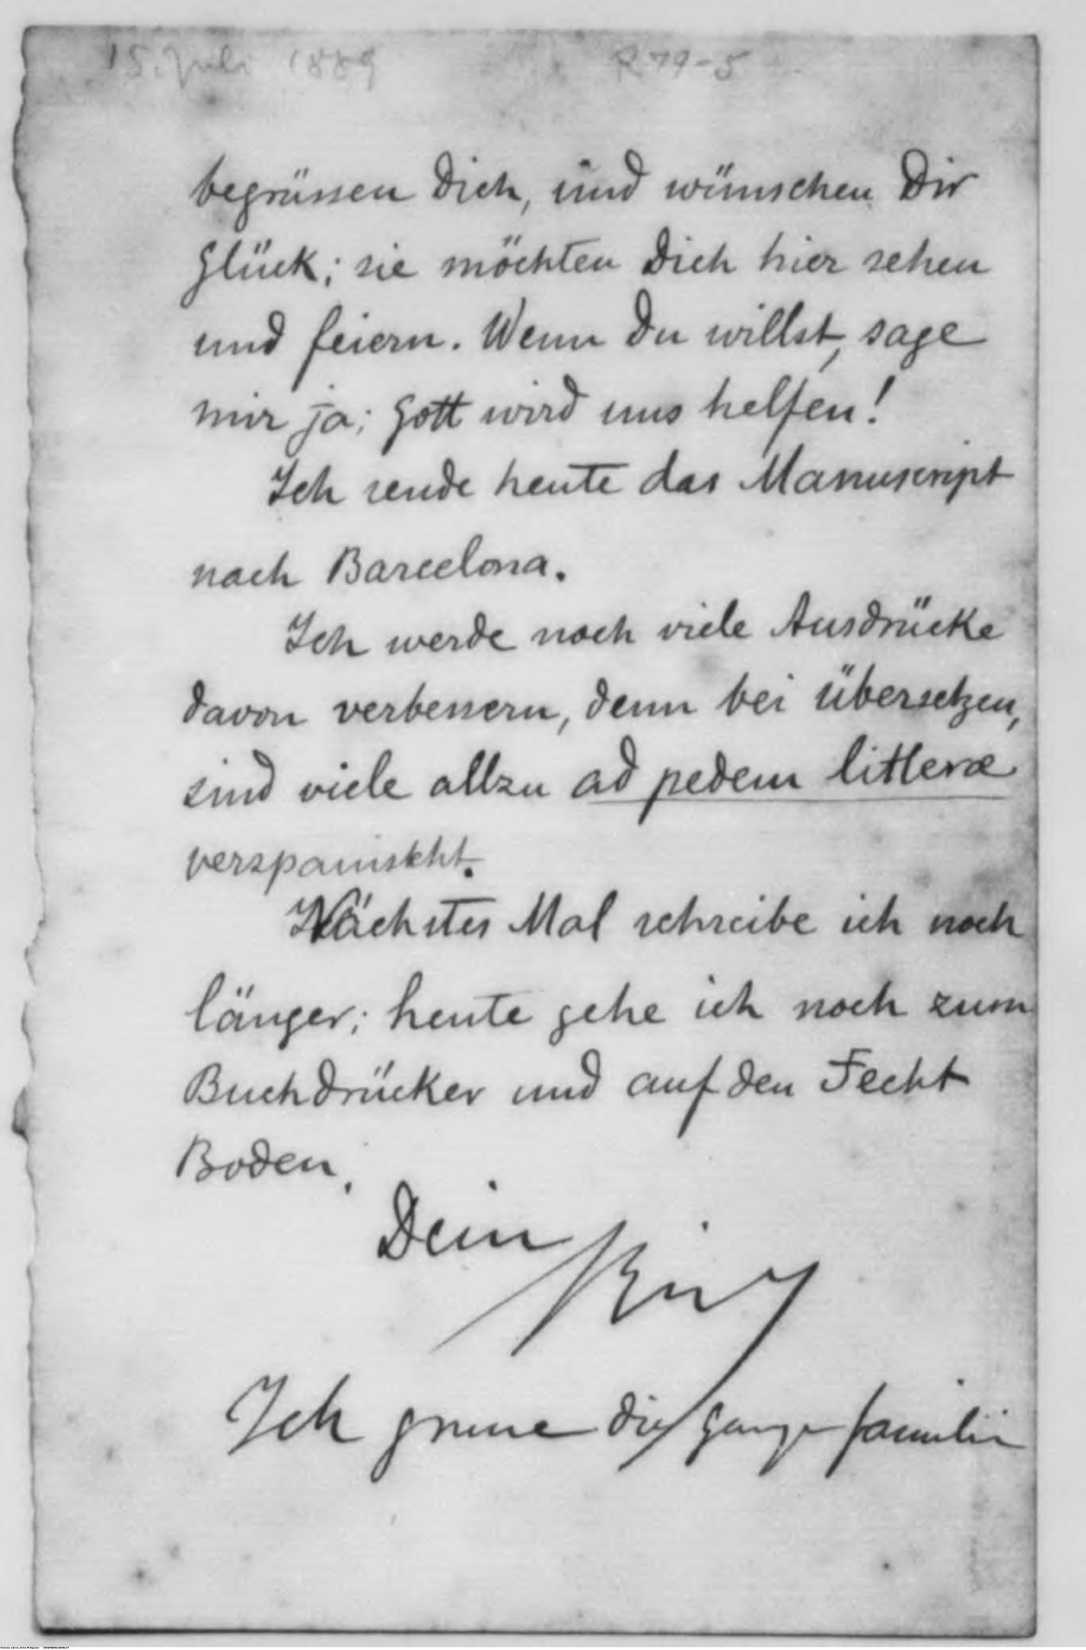 15. Juli 1889 R 79-5
begrüssen Dich, und wünschen Dir
Glück; sie möchten Dich hier sehen
und feiern. Wenn Du willst, sage
mir ja; Gott wird uns helfen!
Ich sende heute das Manuscript
nach Barcelona.
Ich werde noch viele Ausdrücke
davon verbessern, denn bei Übersetzen,
sind viele allzu ad pedem litteræ
verspanischt.
Nächstes Mal schreibe ich noch
länger; heute gehe ich noch zum
Buchdrücker und auf den Fecht
Boden.
Dein
Ich grüsse die ganze Familie